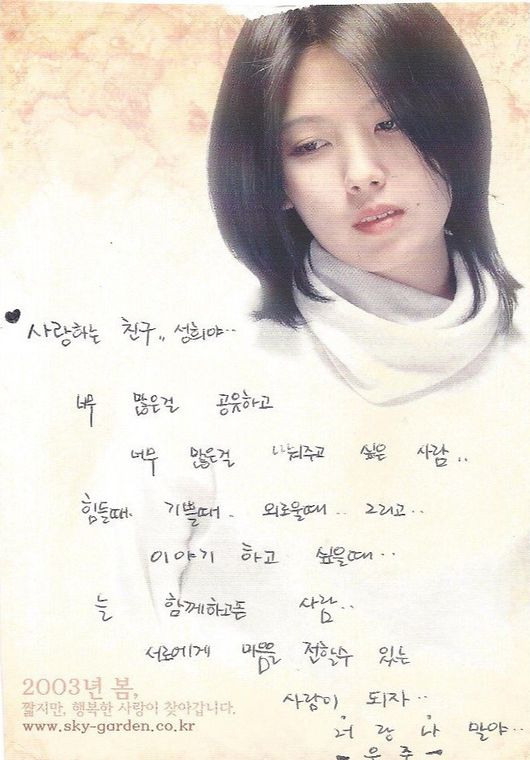 ♥ 사랑하는 친구,, 성희야..
너무 많은걸 공유하고
너무 많은걸 나눠주고 싶은 사람..
힘들때. 기쁠때. 외로울때.. 그리고..
이야기 하고 싶을때..
늘 함께하고픈 사람..
서로에게 마음을 전할수 있는
사람이 되자..
너랑 나 말야..
- 우주 -
2003년 봄,
짧지만, 행복한 사랑이 찾아갑니다.
www.sky-garden.co.kr